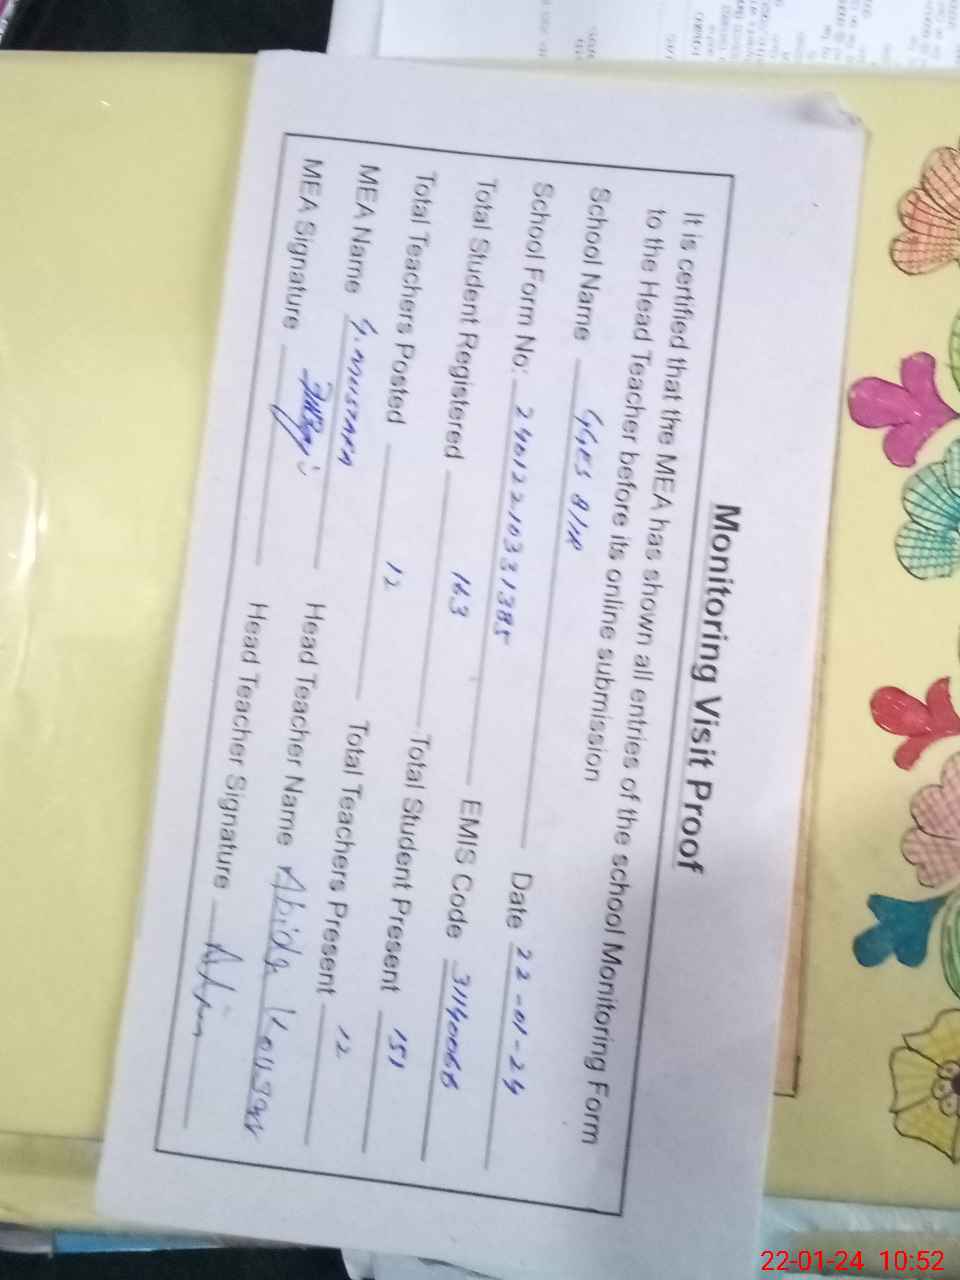 Monitoring Visit Proof
It is certified that the MEA has shown all entries of the school Monitoring Form
to the Head Teacher before its online submission
School Name GGES 8/1R
School Form No: 240122103313​85 Date 22-01-24
Total Student Registered 163 EMIS Code 31140068
Total Teachers Posted 12 Total Student Present 151
MEA Name G. MUSTAFA Total Teachers Present 12
MEA Signature Head Teacher Name Abida Kousar
Head Teacher Signature
22-01-24 10:52